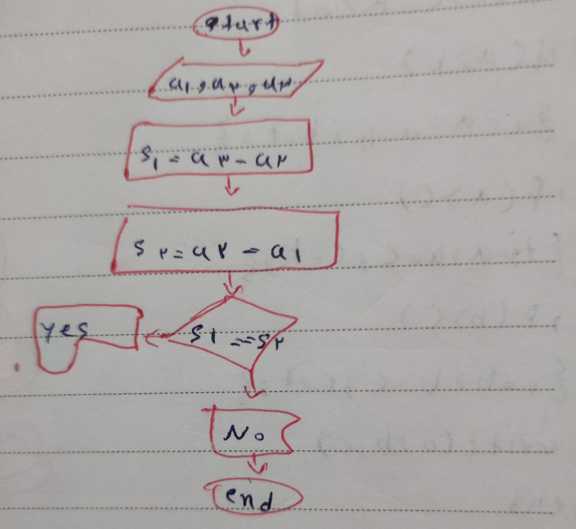 start
a۱, a۲, a۳
s۱ = a۳ - a۲
s۲ = a۲ - a۱
s۱ == s۲
yes
No
end